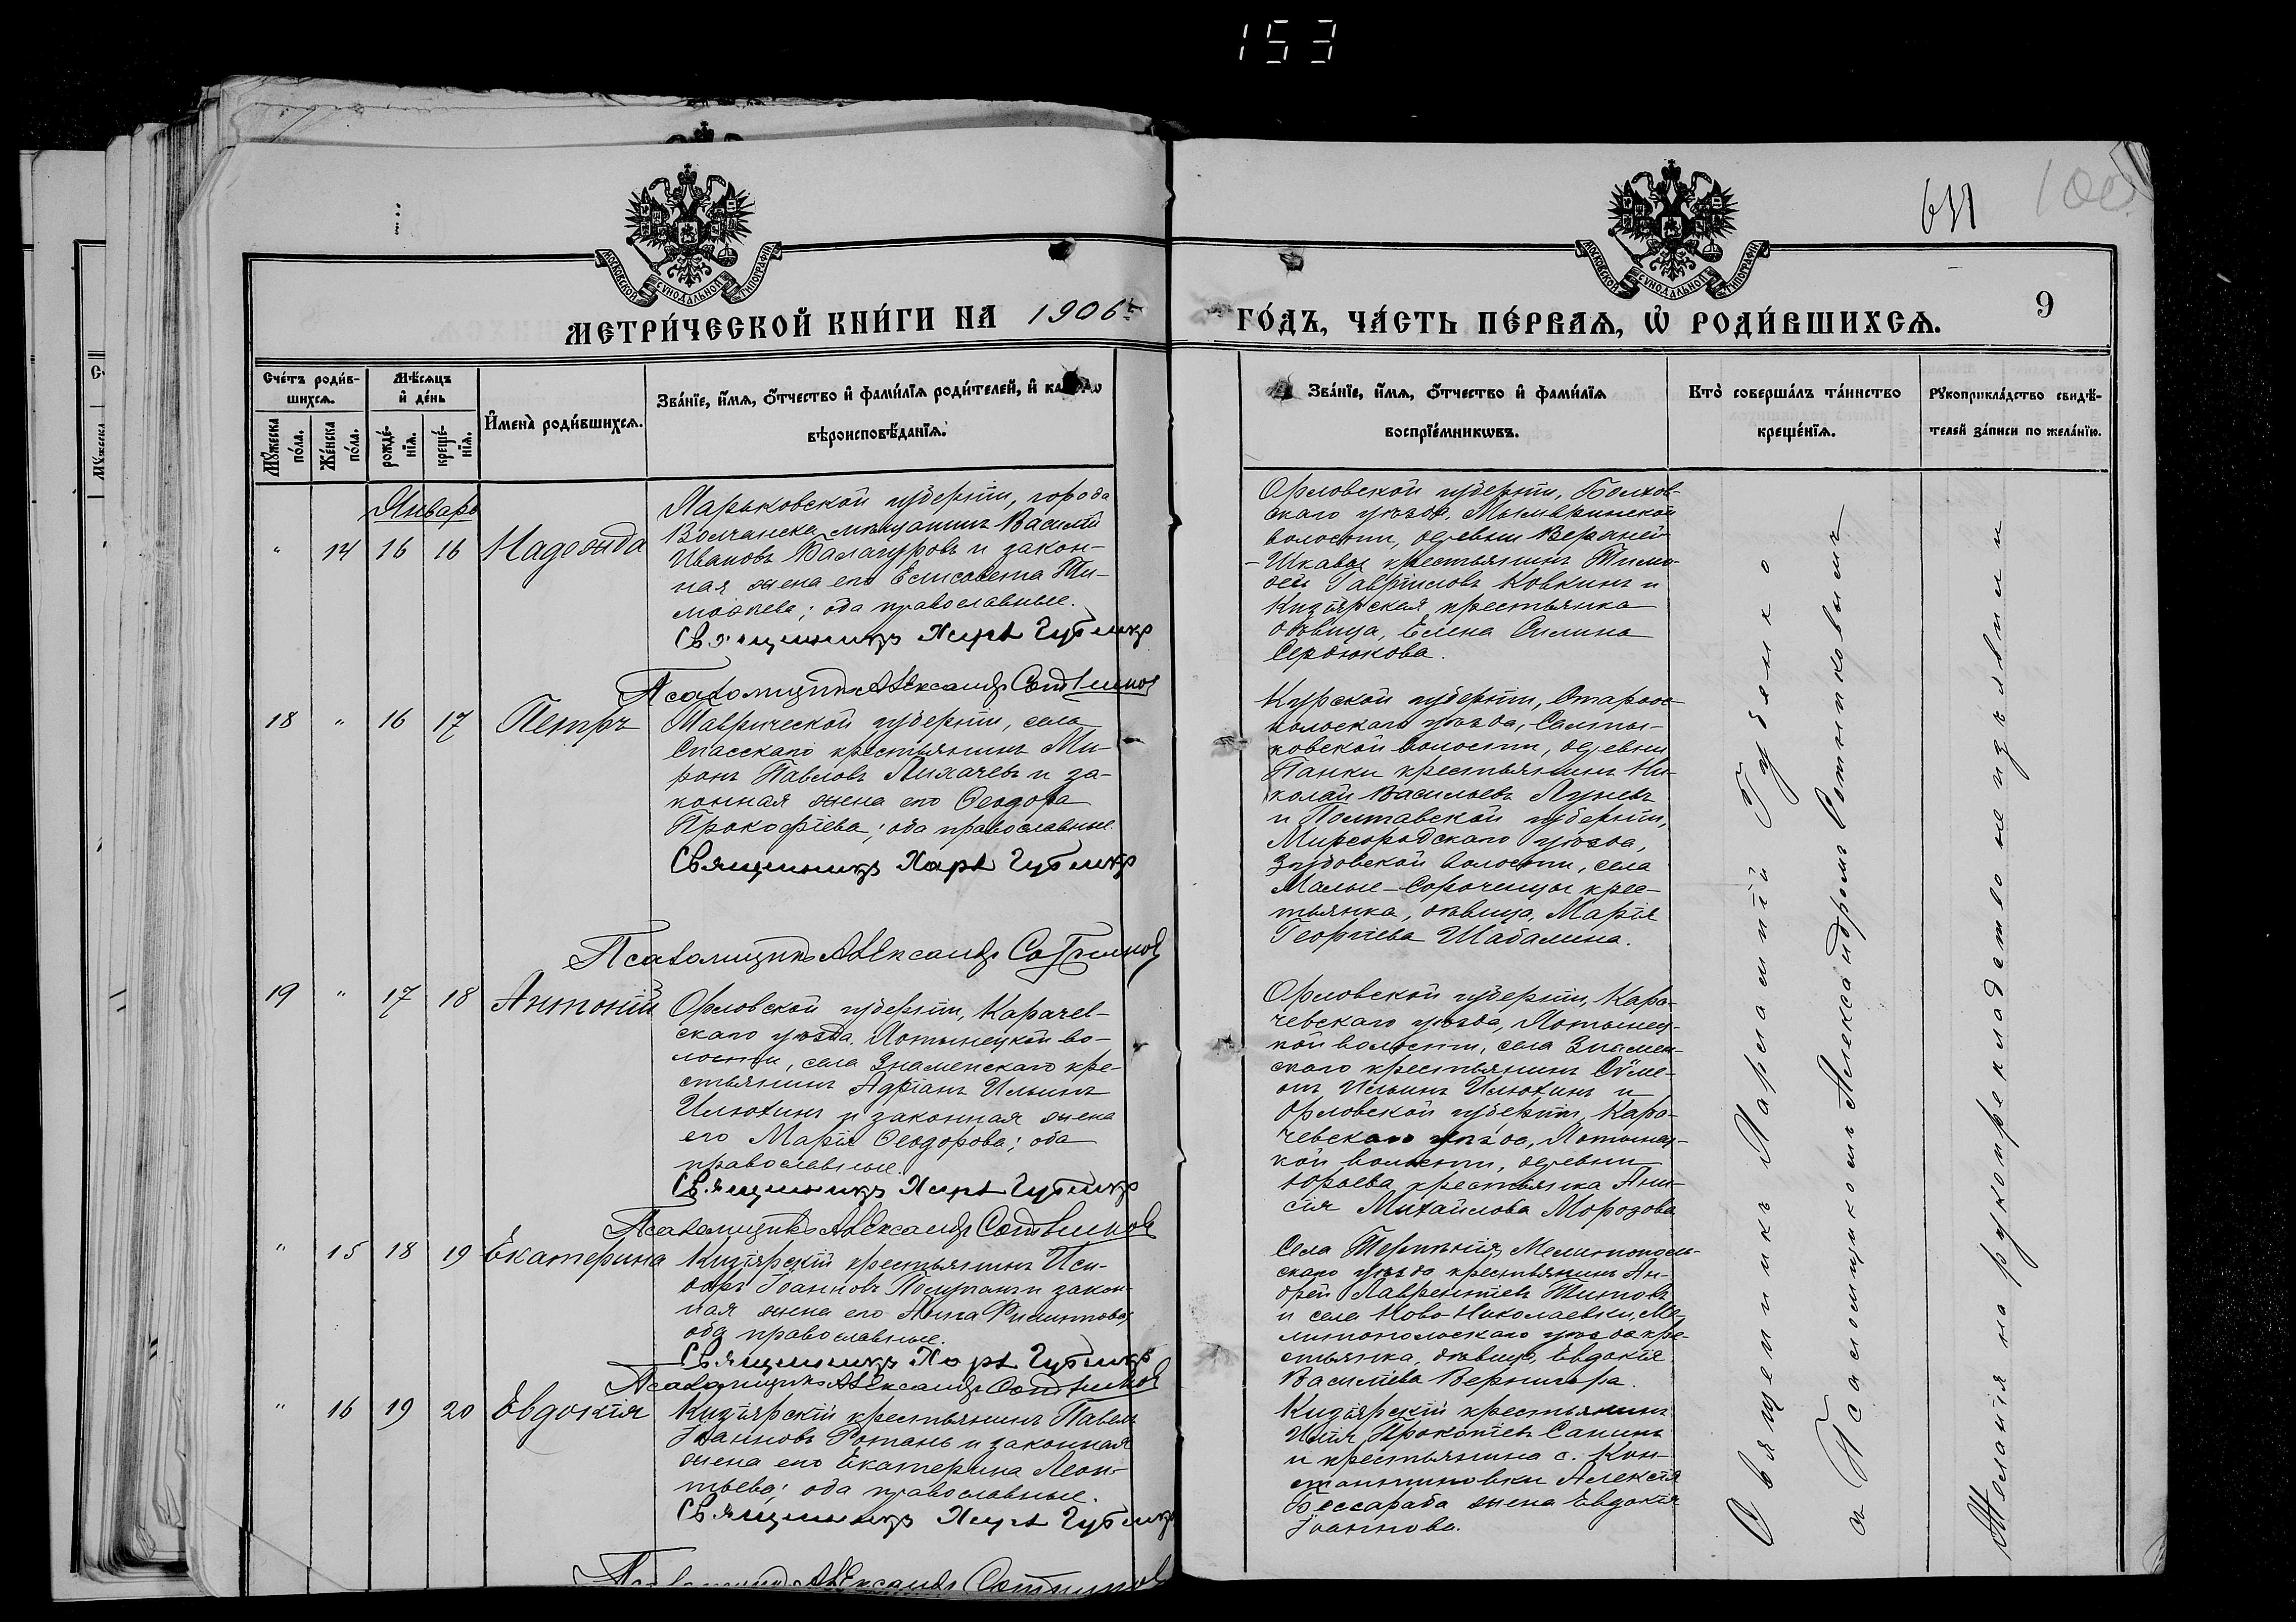 153
631
100
МОСКОВСКОЙ СУНОДАЛЬНОЙ ТИПОГРАФІИ
МОСКОВСКОЙ СУНОДАЛЬНОЙ ТИПОГРАФІИ
МЕТРИ́ЧЕСКОЙ КНИ́ГИ НА 1906й ГО́ДЪ, ЧА́СТЬ ПЕ́РВАѦ, Ѡ҆ РОДИ́ВШИХСѦ. 9
Сче́тъ роди́в-
шихсѧ.
Мꙋ́жеска по́ла.
Же́нска по́ла.
Мѣ́сѧцъ и҆ де́нь
рожде́-
нїѧ.
креще́-
нїѧ.
И҆мена̀ роди́вшихсѧ.
Зва́нїе, и҆́мѧ, ѻ҆́тчество и҆ фами́лїѧ роди́телей, и҆
вѣроисповѣ́данїѧ.
Зва́нїе, и҆́мѧ, ѻ҆́тчество и҆ фами́лїѧ
воспрїе́мникѡвъ.
Кто̀ соверша́лъ та́инство
креще́нїѧ.
Рꙋкоприкла́дство свидѣ́-
телей за́писи по жела́нїю.
Январь
" 14 16 16 Надежда
Харьковской губерніи, города
Волчанска мѣщанинъ Василій
Ивановъ Балагуровъ и закон-
ная жена его Елисавета Ти-
моѳеева; оба православные.
Священникъ Харл. Губенко
Псаломщикъ Александръ Сотниковъ
Орловской губерніи, Болхов-
скаго уѣзда, Мымринской
волости, деревни Верхней-
Шкавы крестьянинъ Тимо-
ѳей Гавріиловъ Ковкинъ и
Кизіярская крестьянка
дѣвица, Елена Силина
Сердюкова.
18 " 16 17 Петръ
Таврической губерніи, села
Спасскаго крестьянинъ Ми-
ронъ Павловъ Лихачевъ и за-
конная жена его Ѳеодора
Прокофіева; оба православные.
Священникъ Харл. Губенко
Псаломщикъ Александръ Сотниковъ
Курской губерніи, Старос-
кольскаго уѣзда,
ковской волости, деревни
Панки крестьянинъ Ни-
колай Васильевъ Луневъ
и Полтавской губерніи,
Миргородскаго уѣзда,
Зубовской волости, села
Малые-Сорочинцы крес-
тьянка, дѣвица, Марія
Георгіева Шабалина.
19 " 17 18 Антоній
Орловской губерніи, Карачев-
скаго уѣзда, Хотынецкой во-
лости, села Знаменскаго кре-
стьянинъ Адріанъ Ильинъ
Илюхинъ и законная жена
его Марія Ѳеодорова; оба
православные.
Священникъ Харл. Губенко
Псаломщикъ Александръ Сотниковъ
Орловской губерніи, Кара-
чевскаго уѣзда, Хотынец-
кой волости, села Знамен-
скаго крестьянинъ Сѵме-
онъ Ильинъ Илюхинъ и
Орловской губерніи, Кара-
чевскаго уѣзда, Хотынец-
кой волости, деревни
Юрьева крестьянка Ани-
сія Михайлова Морозова
" 15 18 19 Екатерина
Кизіярскій крестьянинъ Иси-
доръ Іоанновъ и закон-
ная жена его Анна Филиппова;
оба православные.
Священникъ Харл. Губенко
Псаломщикъ Александръ Сотниковъ
Села Терпѣнія, Мелитополь-
скаго уѣзда крестьянинъ Ан-
дрей Лаврентіевъ Титовъ
и села Ново-Николаевки, Ме-
литопольскаго уѣзда кре-
стьянка, дѣвица, Евдокія
Василіева Вернигора.
" 16 19 20 Евдокія
Кизіярскій крестьянинъ Павелъ
Іоанновъ Ротань и законная
жена его Екатерина Леон-
тьева; оба православные.
Священникъ Харл. Губенко
Псаломщикъ Александръ Сотниковъ
Кизіярскій крестьянинъ
Илія Прокопіевъ Сапинъ
и крестьянина с. Кон-
стантиновки Алексія
Бессараба жена Евдокія
Іоаннова.
Священникъ Харлампій Губенко
съ Псаломщикомъ Александромъ Сотниковымъ
Желанія на рукоприкладство не изъявили